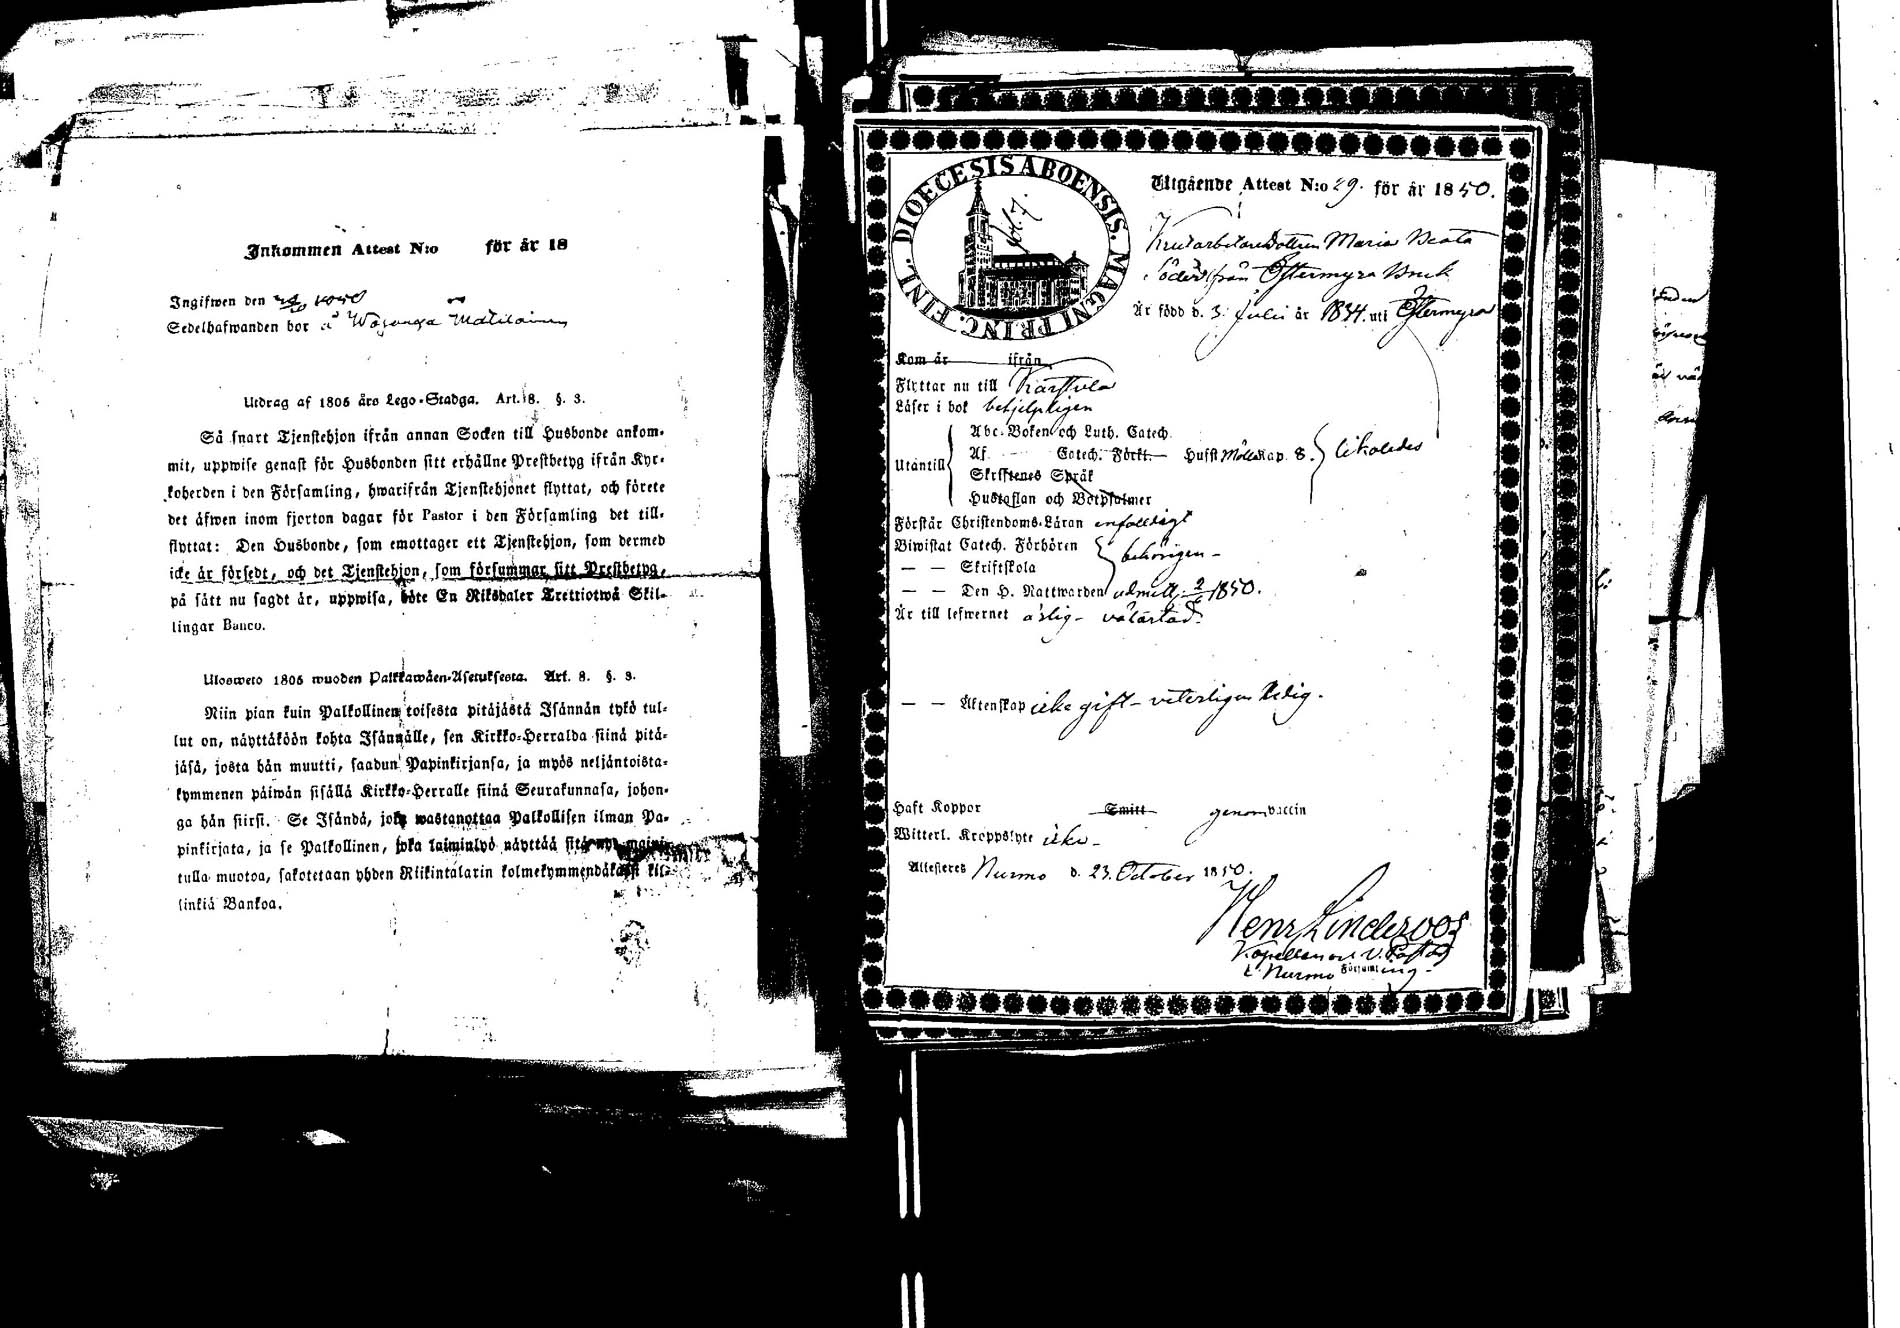 Inkommen Attest N:o för år 18
Ingifwen den
Sedelhafwanden bor å Wäganga Matilainen
Utdrag af 1805 års Lego-Stadga. Art. 8. §. 3.
Så snart Tjenstehjon ifrån annan Socken till Husbonde ankom-
mit, uppwise genast för Husbonden sitt erhållne Prestbetyg ifrån Kyr-
koherden i den Församling, hwarifrån Tjenstehjonet flyttat, och förete
det äfwen inom fjorton dagar för Pastor i den Församling det till-
flyttat: Den Husbonde, som emottager ett Tjenstehjon, som dermed
icke är försedt, och det Tjenstehjon, som försummar sitt Prestbetyg,
på sätt nu sagdt är, uppwisa, böte En Riksdaler Trettiotwå Skil-
lingar Banco.
Ulosweto 1805 wuoden Palkkawäen-Asetuksesta. Art. 8. §. 3.
Niin pian kuin Palkollinen toisesta pitäjästä Isännän tykö tul-
lut on, näyttäköön kohta Isännälle, sen Kirkko-Herralda siinä pitä-
jäsä, josta hän muutti, saadun Papinkirjansa, ja myös neljäntoista-
kymmenen päiwän sisällä Kirkko-Herralle siinä Seurakunnasa, johon-
ga hän siirsi. Se Isändä, joka wastanottaa Palkollisen ilman Pa-
pinkirjata, ja se Palkollinen, joka laiminlyö näyttää sitä nyt maini-
tulla muotoa, sakotetaan yhden Riikintalarin kolmekymmendäkaksi kil-
linkiä Bankoa.
DIOECESIS ABOENSIS. MAGNI PRINC. FINL.
fol. 7.
Utgående Attest N:o 29. för år 1850.
Krutarbetaredottren Maria Beata
Söder från Östermyra Bruk
Är född d. 3 Juli år 1834. uti Östermyra
Kom år ifrån
Flyttar nu till Karstula
Läser i bok behjelpligen
Utantill
Abc-Boken och Luth. Catech.
Af Catech. Förkl. Husst Möllekap. 8. likaledes
Skriftenes Språk
Hustaflan och Botpsalmer
Förstår Christendoms-Läran enfaldigt
Biwistat Catech. Förhören behörigen -
— — Skriftskola
— — Den H. Nattwarden admitt. 2/6 1850.
Är till lefwernet ärlig - välartad.
— — Äktenskap icke gift - veterligen ledig.
Haft Koppor Smitt genom vaccin
Witterl. Kroppslyte icke -
Attesteres Nurmo d. 23. October 1850.
Henr Linderoos
Kapellan och V. Pastor
i Nurmo Församling -